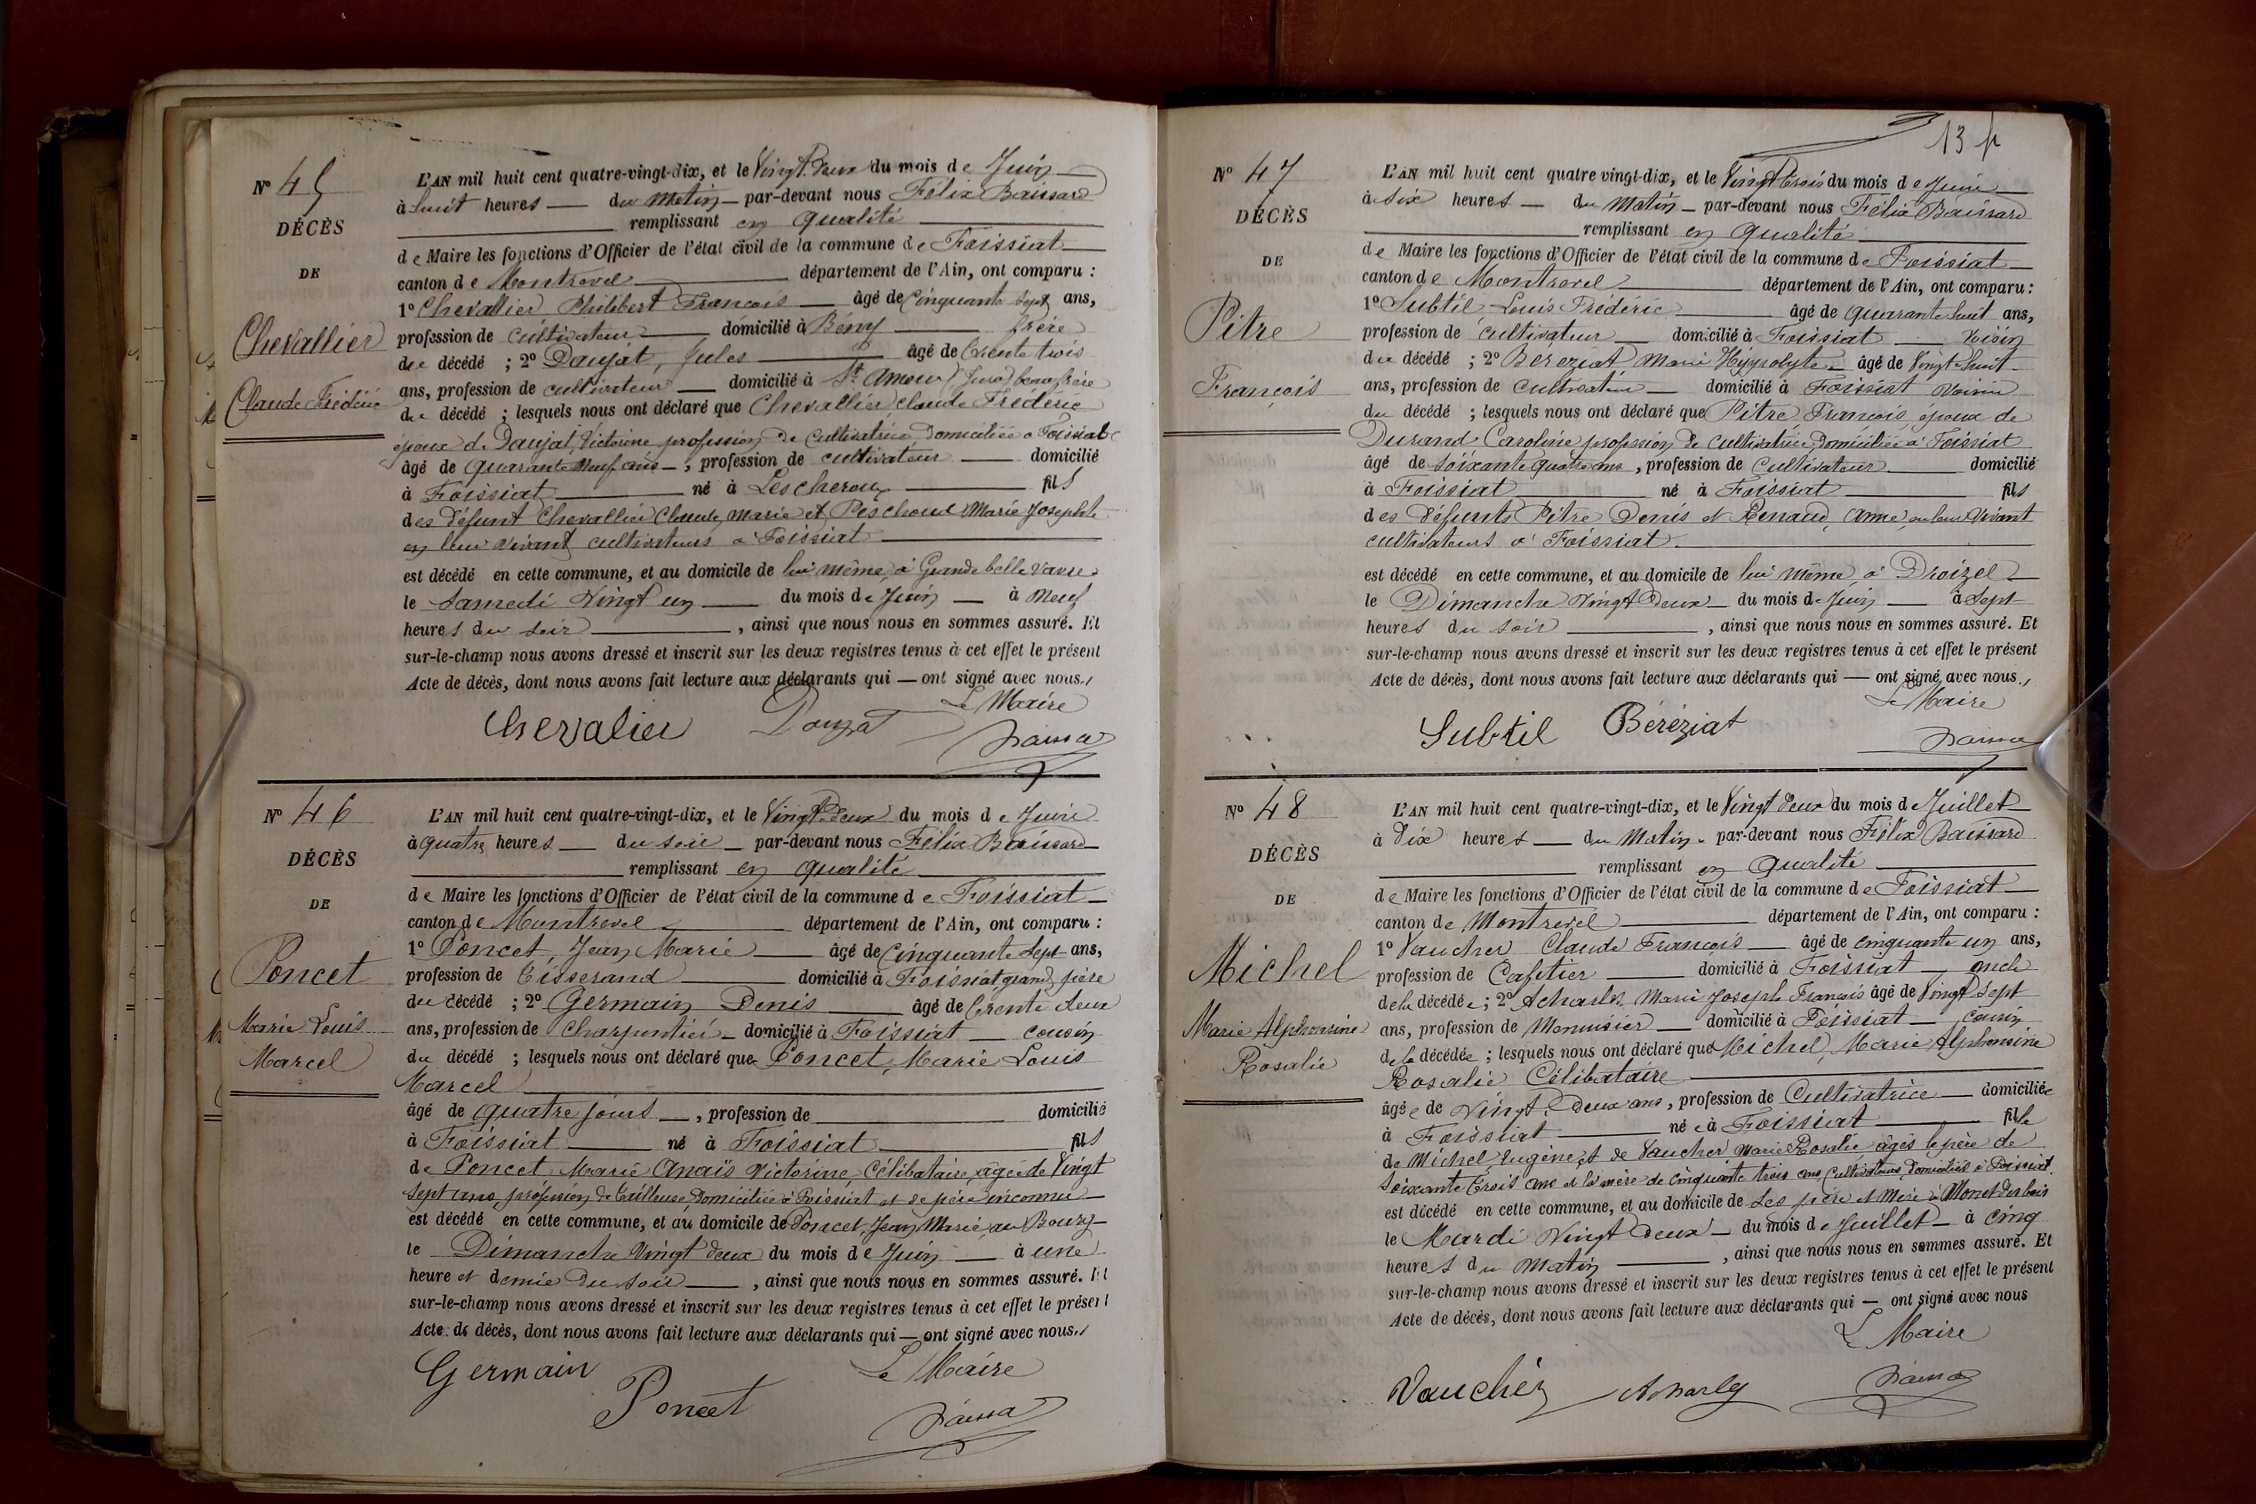 Nº 45
DÉCÈS
DE
Chevallier
Claude Frédéric
L'AN mil huit cent quatre-vingt-dix, et le Vingt Deux du mois de Juin
à huit heures du Matin par-devant nous Félix Baissard
remplissant en qualité
de Maire les fonctions d'Officier de l'état civil de la commune de Foissiat
canton de Montrevel département de l'Ain, ont comparu :
1º Chevallier Philibert François âgé de Cinquante sept ans,
profession de cultivateur domicilié à Bény frère
du décédé ; 2º Daujat, Jules âgé de trente trois
ans, profession de cultivateur domicilié à St Amour (Jura) beau frère
du décédé ; lesquels nous ont déclaré que Chevallier Claude Frédéric
époux de Daujat, Victorine profession de Cultivatrice Domiciliée à Foissiat
âgé de quarante neuf ans, profession de cultivateur domicilié
à Foissiat né à Lescheroux fils
des défunt Chevallier Claude, Marie et Peschoud Marie Josephte
en leur vivant cultivateurs à Foissiat
est décédé en cette commune, et au domicile de lui même, à Grande belle vavre
le Samedi Vingt un du mois de Juin à Neuf
heures du soir, ainsi que nous nous en sommes assuré. Et
sur-le-champ nous avons dressé et inscrit sur les deux registres tenus à cet effet le présent
Acte de décès, dont nous avons fait lecture aux déclarants qui — ont signé avec nous.
Le Maire
Chevalier
Nº 46
DÉCÈS
DE
Poncet
Marie Louis
Marcel
L'AN mil huit cent quatre-vingt-dix, et le Vingt Deux du mois de Juin
à quatre heures du soir par-devant nous Félix Baissard
remplissant en qualité
de Maire les fonctions d'Officier de l'état civil de la commune de Foissiat
canton de Montrevel département de l'Ain, ont comparu :
1º Poncet, Jean Marie âgé de Cinquante Sept ans,
profession de Tisserand domicilié à Foissiat grand père
du décédé ; 2º Germain Denis âgé de trente deux
ans, profession de Charpentier domicilié à Foissiat cousin
du décédé ; lesquels nous ont déclaré que Poncet, Marie Louis
Marcel
âgé de quatre jours, profession de domicilié
à Foissiat né à Foissiat fils
de Poncet Marie Anaïs Victorine, Célibataire, âgée de Vingt
sept ans, profession de Tailleuse, Domiciliée à Foissiat et de père inconnu
est décédé en cette commune, et au domicile de Poncet, Jean Marie, au Bourg
le Dimanche Vingt deux du mois de Juin à une
heure et demie Du soir, ainsi que nous nous en sommes assuré. Et
sur-le-champ nous avons dressé et inscrit sur les deux registres tenus à cet effet le présent
Acte de décès, dont nous avons fait lecture aux déclarants qui — ont signé avec nous.
Germain Le Maire
Poncet
13
Nº 47
DÉCÈS
DE
Pitre
François
L'AN mil huit cent quatre vingt-dix, et le Vingt Trois du mois de Juin
à six heures du Matin par-devant nous Félix Baissard
remplissant en qualité
de Maire les fonctions d'Officier de l'état civil de la commune de Foissiat
canton de Montrevel département de l'Ain, ont comparu :
1º Subtil Louis Frédéric âgé de quarante huit ans,
profession de cultivateur domicilié à Foissiat voisin
du décédé ; 2º Bereziat Marie Hyppolyte âgé de Vingt huit
ans, profession de Cultivateur domicilié à Foissiat Voisin
du décédé ; lesquels nous ont déclaré que Pitre François, époux de
Durand Caroline profession de cultivatrice, Domiciliée à Foissiat
âgé de soixante quatre ans, profession de Cultivateur domicilié
à Foissiat né à Foissiat fils
des défunts Pitre Denis et Renaud, Anne, en leur Vivant
cultivateurs à Foissiat.
est décédé en cette commune, et au domicile de lui même, à Droizel
le Dimanche Vingt deux du mois de Juin à Sept
heures du soir, ainsi que nous nous en sommes assuré. Et
sur-le-champ nous avons dressé et inscrit sur les deux registres tenus à cet effet le présent
Acte de décès, dont nous avons fait lecture aux déclarants qui — ont signé avec nous.
Le Maire
Subtil Béréziat
Nº 48
DÉCÈS
DE
Michel
Marie Alphonsine
Rosalie
L'AN mil huit cent quatre-vingt-dix, et le Vingt Deux du mois de Juillet
à Dix heures du Matin par-devant nous Félix Baissard
remplissant en qualité
de Maire les fonctions d'Officier de l'état civil de la commune de Foissiat
canton de Montrevel département de l'Ain, ont comparu :
1º Vaucher Claude François âgé de cinquante un ans,
profession de Cafetier domicilié à Foissiat oncle
de la décédée ; 2º Acharles Marie Joseph François âgé de Vingt Sept
ans, profession de Menuisier domicilié à Foissiat cousin
de la décédée ; lesquels nous ont déclaré que Michel, Marie Alphonsine
Rosalie Célibataire
âgée de Vingt Deux ans, profession de Cultivatrice domiciliée
à Foissiat née à Foissiat fille
de Michel Eugène et de Vaucher Marie Rosalie âgés le père de
Soixante trois ans et la mère de cinquante trois ans Cultivateurs, Domiciliés à Foissiat
est décédé en cette commune, et au domicile de Les père et Mère à Monet des bois
le Mardi Vingt Deux du mois de Juillet à Cinq
heures du Matin, ainsi que nous nous en sommes assuré. Et
sur-le-champ nous avons dressé et inscrit sur les deux registres tenus à cet effet le présent
Acte de décès, dont nous avons fait lecture aux déclarants qui — ont signé avec nous
Le Maire
Vauchér